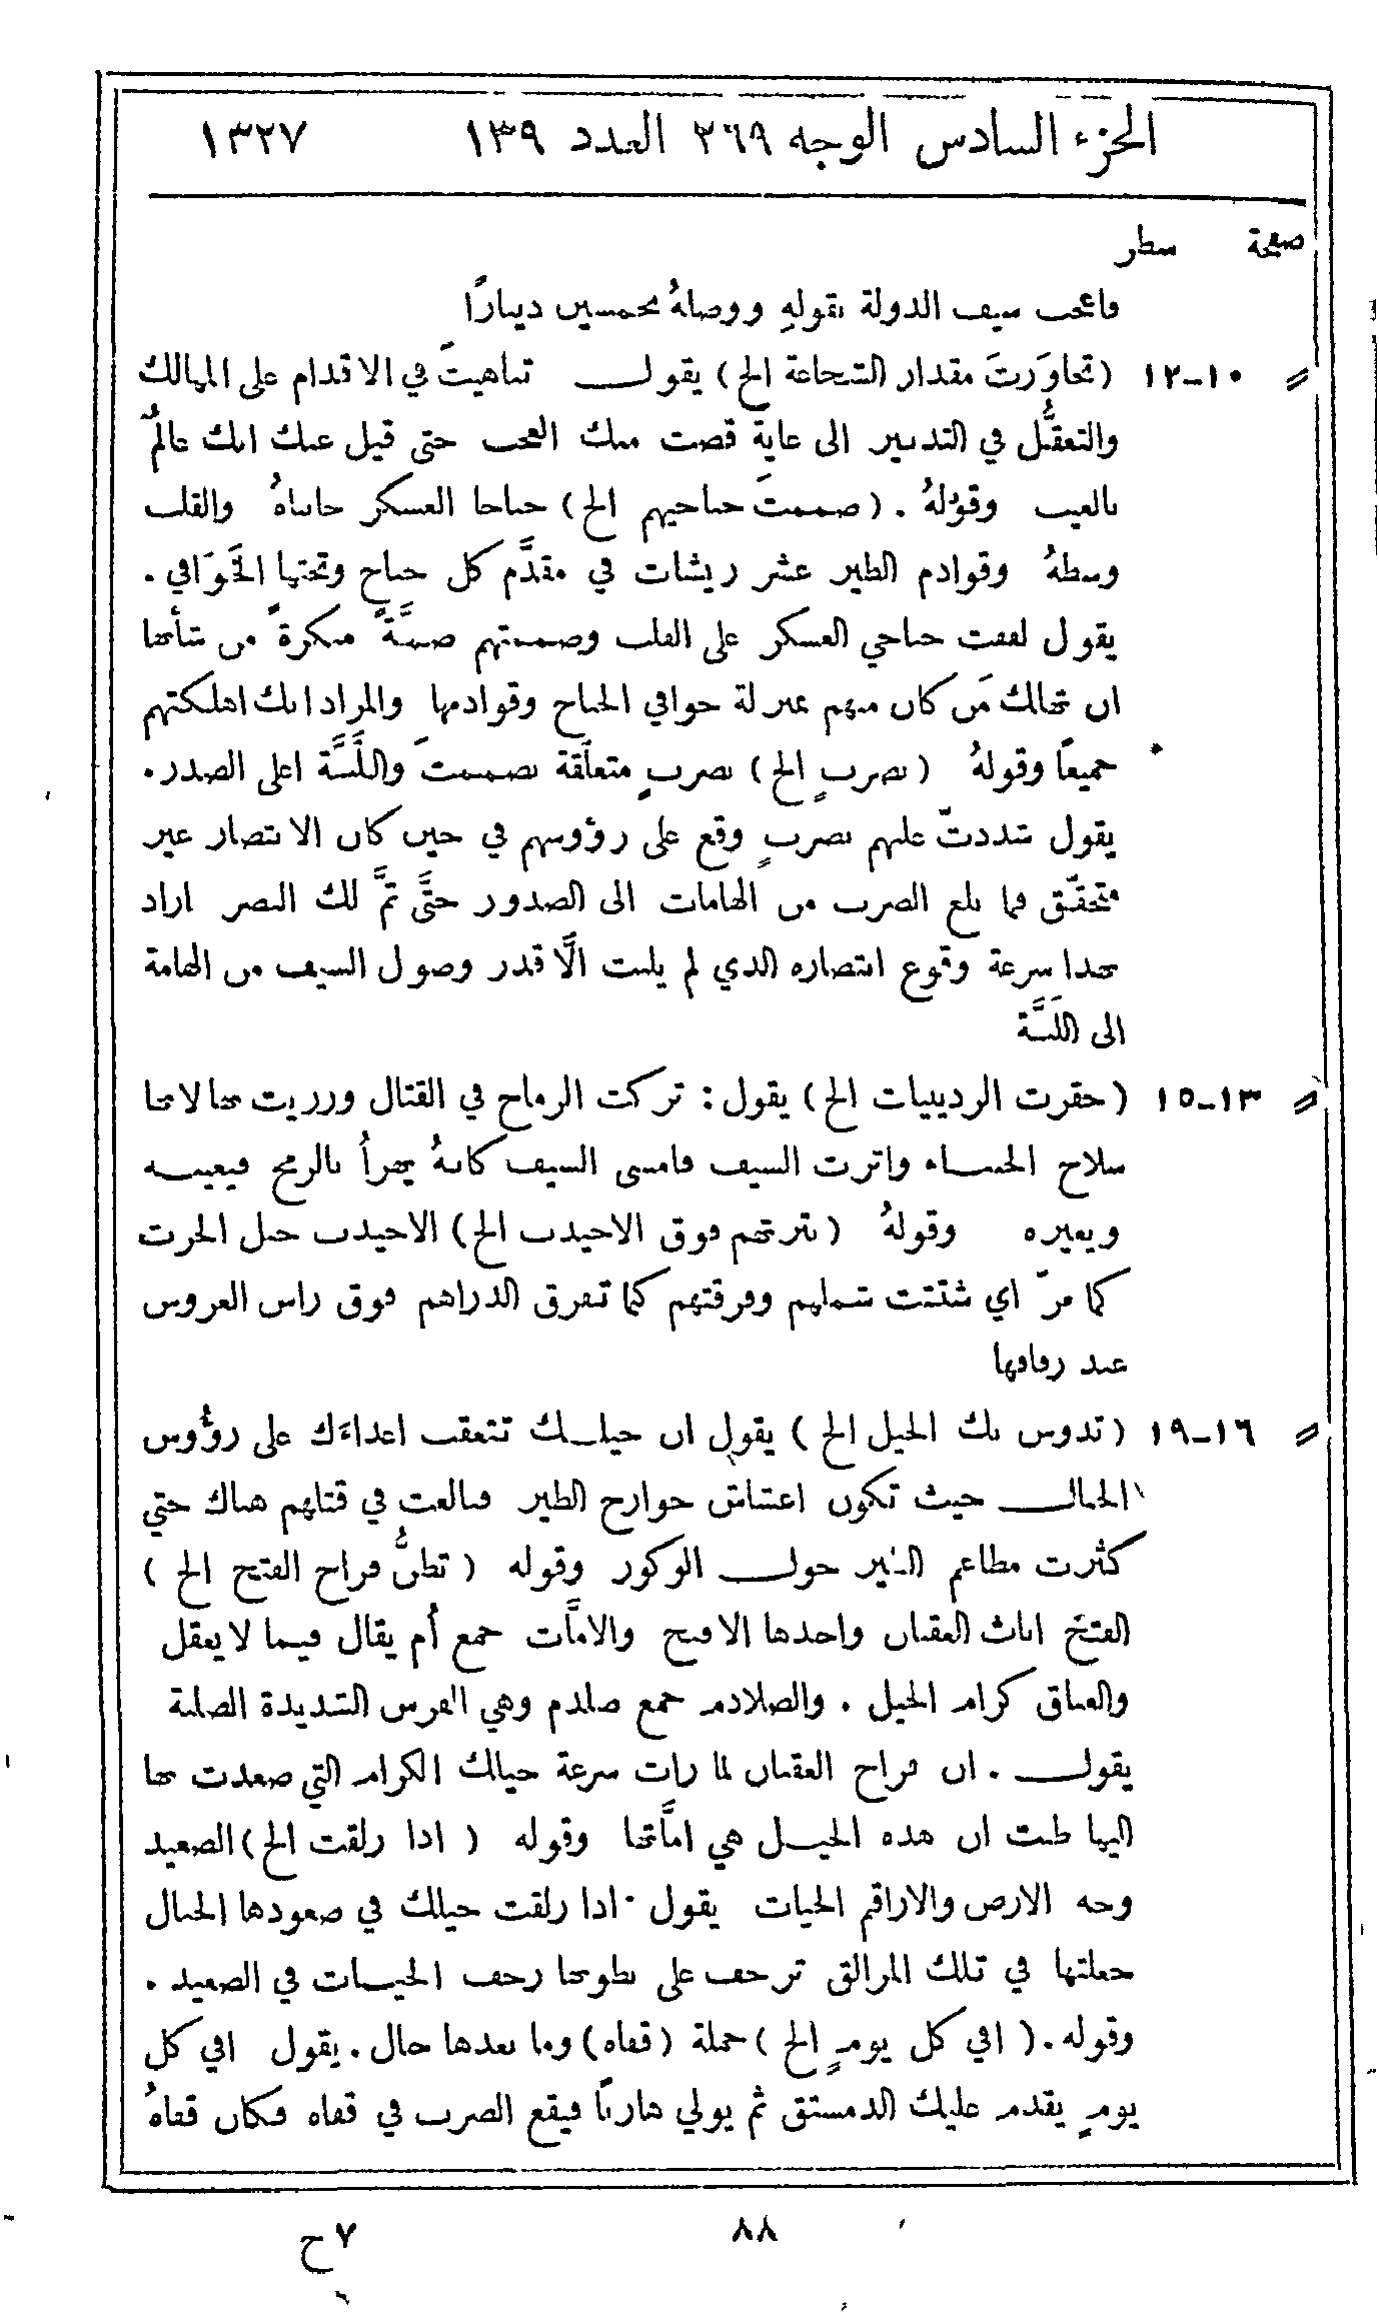 الجزء السادس الوجه ٢٦٩ العدد ١٣٩ ١٣٢٧
صفحة سطر
فاعجب سيف الدولة بقولهِ ووصلهُ بخمسين دينارًا
= ١٠-١٢ (تجاوَرتَ مقدار الشجاعة الخ) يقول تناهيتَ في الاقدام على المهالك
والتعقُّل في التدبير الى غايةٍ قضت منك العجب حتى قيل عنك انك عالمٌ
بالغيب وقولهُ . (ضممتَ جناحيهم الخ) جناحا العسكر جانباهُ والقلب
وسطهُ وقوادم الطير عشر ريشات في مقدَّم كل جناحٍ وتحتها الخَوَافي .
يقول لففت جناحي العسكر على القلب وضممتهم ضمَّةً منكرةً من شأنها
ان تهالك مَن كان منهم بمنزلة خوافي الجناح وقوادمها والمراد انك اهلكتهم
جميعًا وقولهُ (بضربٍ الخ) بضربٍ متعلّقة بضممتَ واللَّبَّة اعلى الصدر.
يقول شددتّ عليهم بضربٍ وقع على رؤوسهم في حين كان الانتصار غير
متحقّق فما بلغ الضرب من الهامات الى الصدور حتَّى تمَّ لك النصر اراد
بهذا سرعة وقوع انتصاره الذي لم يلبث الَّا قدر وصول السيف من الهامة
الى اللَّبَّة
= ١٣-١٥ (حقرت الردينيات الخ) يقول: تركت الرماح في القتال وزريت بها لانها
سلاح الجبناء واثرت السيف فامسى السيف كانهُ يهزأُ بالرمح فيعيبه
ويعيره وقولهُ (نثرتهم فوق الاحيدب الخ) الاحيدب جبل الحرث
كما مرّ اي شتتت شملهم وفرقتهم كما تفرق الدراهم فوق راس العروس
عند زفافها
= ١٦-١٩ (تدوس بك الخيل الخ) يقول ان خيلك تتعقب اعداءَك على رؤُوس
الجبال حيث تكون اعشاش جوارح الطير فبالغت في قتلهم هناك حتي
كثرت مطاعم الطير حول الوكور وقوله (تظنُّ فراخ الفتخ الخ)
الفتخ اناث العقبان واحدها الافتخ والامَّات جمع أُم يقال فيما لا يعقل
والعتاق كرام الخيل . والصلادم جمع صلدم وهي الفرس الشديدة الصلبة
يقول . ان فراخ العقبان لما رات سرعة خيالك الكرام التي صعدت بها
اليها ظنت ان هذه الخيل هي امَّاتها وقوله (اذا زلقت الخ) الصعيد
وجه الارض والاراقم الحيات يقول . اذا زلقت خيلك في صعودها الجبال
جعلتها في تلك المزالق تزحف على بطونها زحف الحيات في الصعيد .
وقوله . (افي كل يومٍ الخ) جملة (قفاه) وما بعدها حال . يقول افي كل
يومٍ يقدم عليك الدمستق ثم يولي هاربًا فيقع الضرب في قفاه فكان قفاهُ
٨٨ ٧ ح